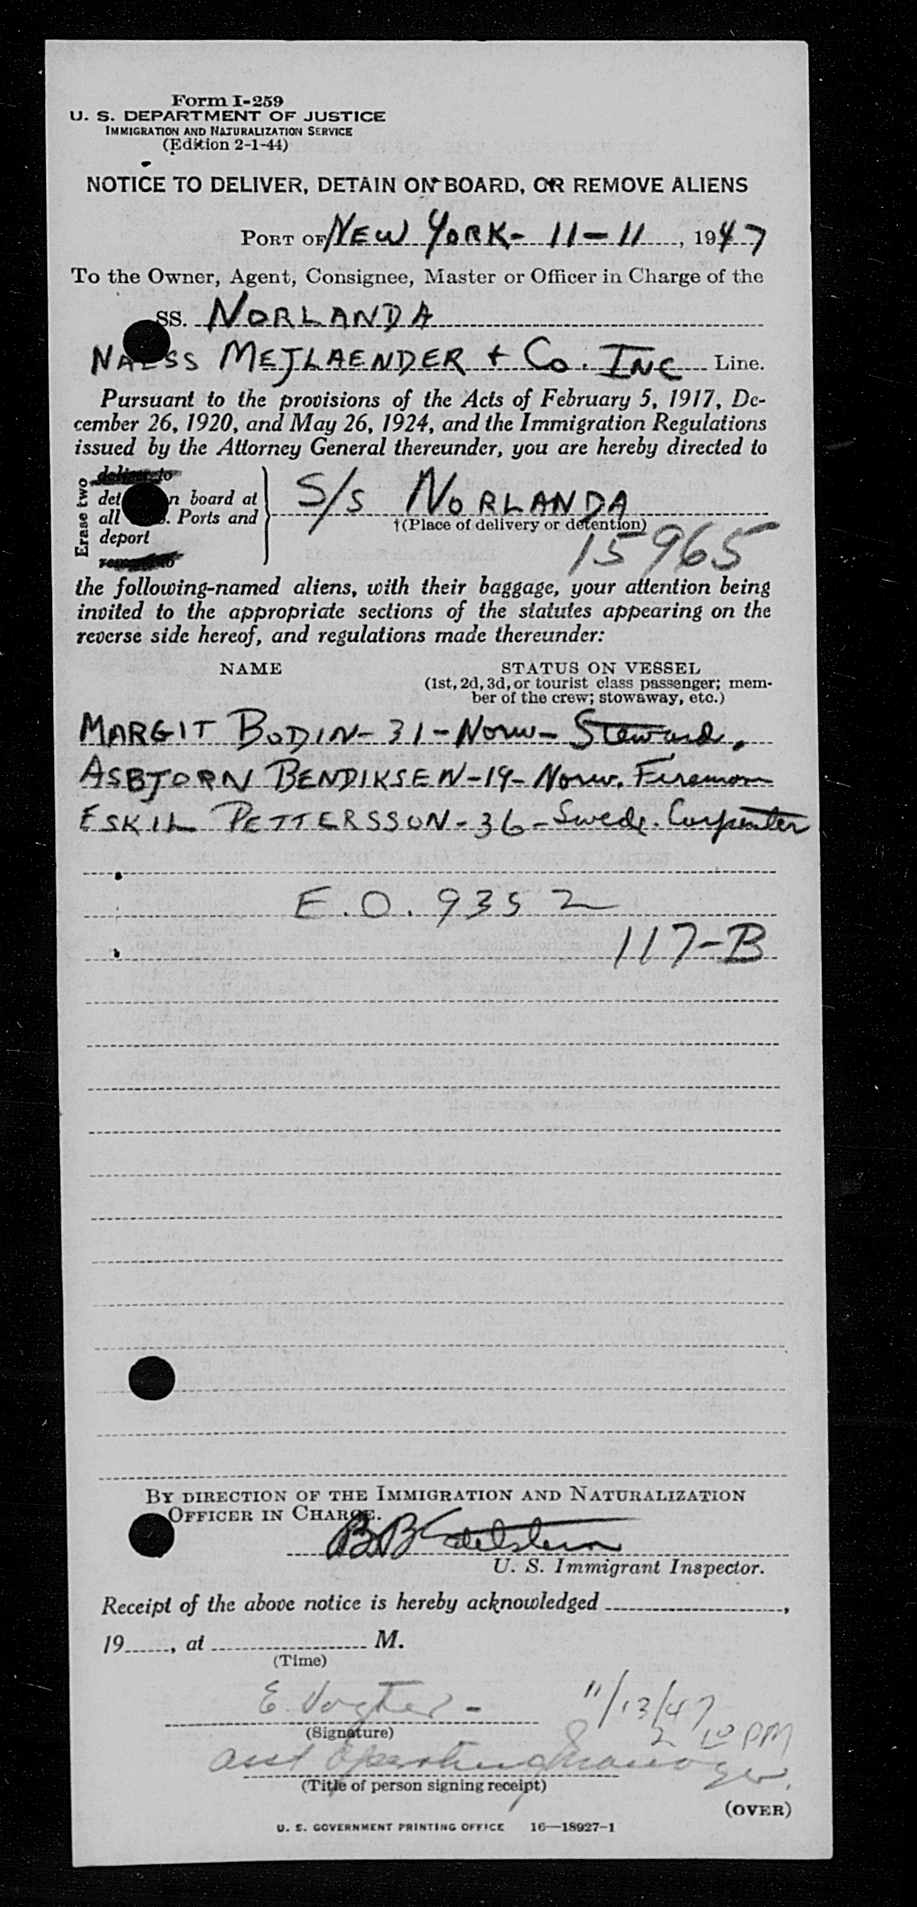 Form I-259
U. S. DEPARTMENT OF JUSTICE
IMMIGRATION AND NATURALIZATION SERVICE
(Edition 2-1-44)
NOTICE TO DELIVER, DETAIN ON BOARD, OR REMOVE ALIENS
PORT OF NEW YORK- 11-11, 1947
To the Owner, Agent, Consignee, Master or Officer in Charge of the
SS. NORLANDA
NAESS MEJLAENDER + CO. INC Line.
Pursuant to the provisions of the Acts of February 5, 1917, De-
cember 26, 1920, and May 26, 1924, and the Immigration Regulations
issued by the Attorney General thereunder, you are hereby directed to
Erase two
deliver to
det n board at
all . Ports and
deport
remove to
S/S NORLANDA
†(Place of delivery or detention)
15965
the following-named aliens, with their baggage, your attention being
invited to the appropriate sections of the statutes appearing on the
reverse side hereof, and regulations made thereunder:
NAME STATUS ON VESSEL
(1st, 2d, 3d, or tourist class passenger; mem-
ber of the crew; stowaway, etc.)
MARGIT BODIN- 31 - Norw- Steward.
ASBJORN BENDIKSEN-19- Norw. Fireman
ESKIL PETTERSSON - 36 - Swede. Carpenter
E.O. 9352
117-B
BY DIRECTION OF THE IMMIGRATION AND NATURALIZATION
OFFICER IN CHARGE.
BB Edelstein
U. S. Immigrant Inspector.
Receipt of the above notice is hereby acknowledged ,
19 , at M.
(Time)
E. Vogter - 11/13/47
(Signature) 2 10 PM
Asst Operating Manager.
(Title of person signing receipt)
(OVER)
U. S. GOVERNMENT PRINTING OFFICE 16—18927-1